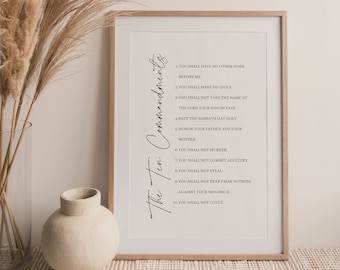 The Ten Commandments
1. YOU SHALL HAVE NO OTHER GODS
BEFORE ME
2. YOU SHALL MAKE NO IDOLS
3. YOU SHALL NOT TAKE THE NAME OF
THE LORD YOUR GOD IN VAIN
4. KEEP THE SABBATH DAY HOLY
5. HONOR YOUR FATHER AND YOUR
MOTHER
6. YOU SHALL NOT MURDER
7. YOU SHALL NOT COMMIT ADULTERY
8. YOU SHALL NOT STEAL
9. YOU SHALL NOT BEAR FALSE WITNESS
AGAINST YOUR NEIGHBOR
10. YOU SHALL NOT COVET